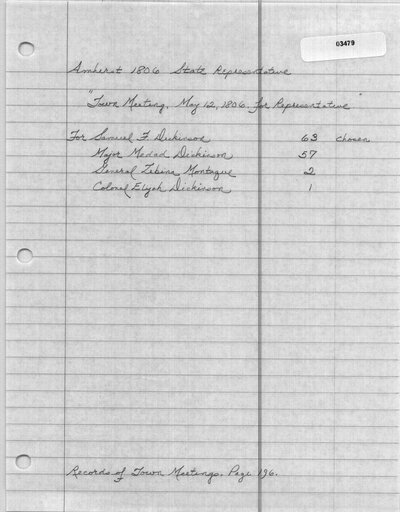 03479
Amherst 1806 State Representative
"Town Meeting, May 12, 1806. for Representative"
For Samuel F. Dickinson 63 chosen
Major Medad Dickinson 57
General Zebina Montague 2
Colonel Elijah Dickinson 1
Records of Town Meetings. Page 196.